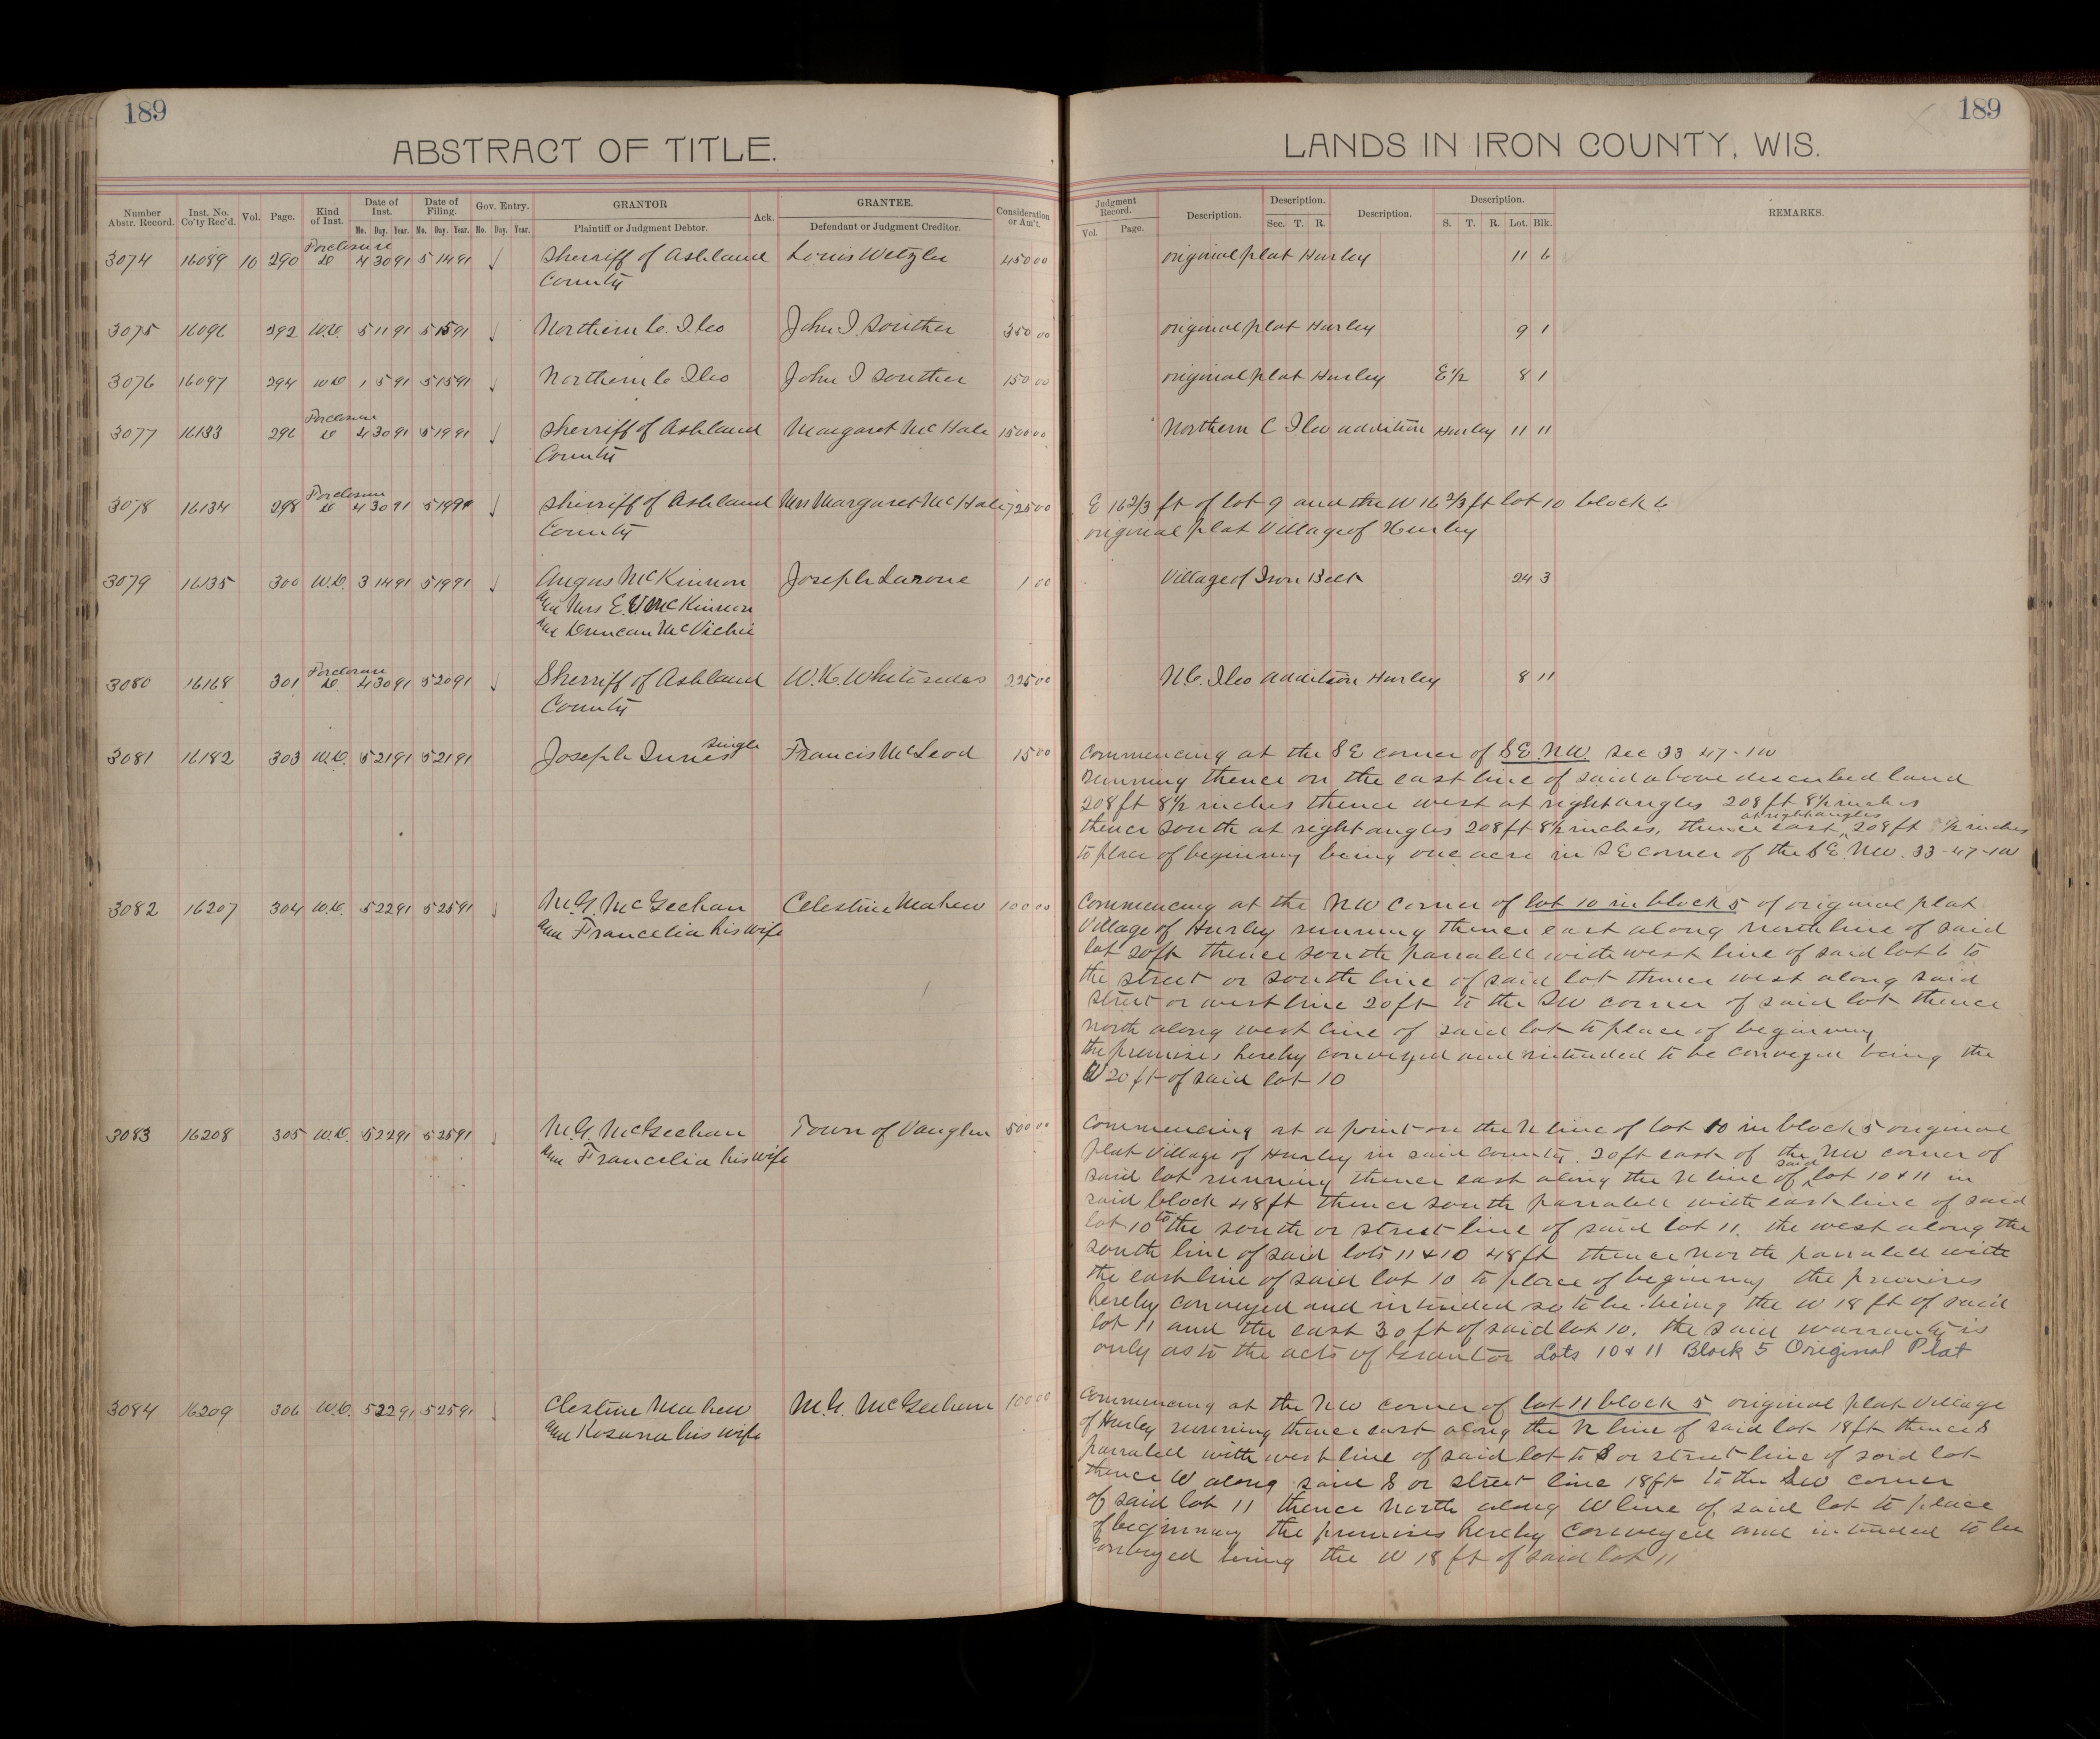 189
189
ABSTRACT OF TITLE.
LANDS IN IRON COUNTY, WIS.
Number Abstr. Record. Inst. No. Co'ty Rec'd. Vol. Page. Kind of Inst. Date of Inst. Date of Filing. Gov. Entry. GRANTOR Ack. GRANTEE. Consideration or Am't.
Mo. Day. Year. Mo. Day. Year. Mo. Day. Year. Plaintiff or Judgment Debtor. Defendant or Judgment Creditor.
Judgment Record. Description. Description. Description. Description. REMARKS.
Vol. Page. Sec. T. R. S. T. R. Lot. Blk.
Foreclosure
3074 16089 10 290 D 4 30 91 5 14 91 ✓ Sherriff of Ashland Louis Wetzler 450 00 original plat Hurley 11 6
County
3075 16096 292 W.D. 5 11 91 5 15 91 ✓ Northern C. I. Co John I. Souther 350 00 original plat Hurley 9 1
3076 16097 294 W D 1 5 91 5 15 91 ✓ Northern C I Co John I Souther 150 00 original plat Hurley E 1/2 8 1
Foreclosure
3077 16133 296 D 4 30 91 5 19 91 ✓ Sherriff of Ashland Margaret Mc Hale 1500 00 Northern C I Co addition Hurley 11 11
County
Foreclosure
3078 16134 298 D 4 30 91 5 19 91 ✓ Sherriff of Ashland Mrs Margaret Mc Hale 725 00 E 16 2/3 ft of lot 9 and the W 16 2/3 ft lot 10 block 6
County original plat Village of Hurley
3079 16135 300 W.D. 3 14 91 5 19 91 ✓ Angus McKinnon Joseph Larone 1 00 Village of Iron Belt 24 3
and Mrs E. V. McKinnon
and Duncan McVichie
Foreclosure
3080 16168 301 D 4 30 91 5 20 91 ✓ Sherriff of Ashland W. K. Whitesides 225 00 N.C. I Co addition Hurley 8 11
County
3081 16182 303 W.D. 5 21 91 5 21 91 Joseph Innes single Francis McLeod 15 00 Commencing at the SE corner of SE. NW. sec 33 47-1W
running thence on the east line of said above described land
208 ft 8 1/2 inches thence west at right angles 208 ft 8 1/2 inches
thence south at right angles 208 ft 8 1/2 inches, thence east at right angles 208 ft 8 1/2 inches
to place of beginning being one acre in SE corner of the SE. NW. 33-47-1W
3082 16207 304 W.D. 5 22 91 5 25 91 ✓ M. G. McGeehan Celestine Mahew 100 00 Commencing at the NW corner of lot 10 in block 5 of original plat
and Francelia his wife Village of Hurley running thence east along north line of said
lot 20ft thence south parralell with west line of said lot 6 to
the street or south line of said lot thence west along said
street or west line 20ft to the SW corner of said lot thence
north along west line of said lot to place of beginning
the premises hereby conveyed and intended to be conveyed being the
W 20 ft of said lot 10
3083 16208 305 W.D. 5 22 91 5 25 91 ✓ M. G. McGeehan Town of Vaughn 500 00 Commencing at a point on the N line of lot 10 in block 5 original
and Francelia his wife plat Village of Hurley in said county. 20ft east of the NW corner of
said lot running thence east along the N line of said lot 10 & 11 in
said block 48 ft thence south parralell with east line of said
lot 10 to the south or street line of said lot 11. the west along the
south line of said lots 11 & 10 48 ft thence north parralell with
the east line of said lot 10 to place of beginning the premises
hereby conveyed and intended so to be being the W 18 ft of said
lot 11 and the east 30 ft of said lot 10. the said warranty is
only as to the acts of Grantor Lots 10 & 11 Block 5 Original Plat
3084 16209 306 W.D. 5 22 91 5 25 91 ✓ Clestine Mahew M. G. McGeehan 100 00 Commencing at the NW corner of lot 11 block 5 original plat Village
and Rosanna his wife of Hurley running thence east along the N line of said lot 18ft thence S
parralell with west line of said lot to S or street line of said lot
thence W along said S or street line 18ft to the SW corner
of said lot 11 thence North along W line of said lot to place
of beginning the premises hereby conveyed and intended to be
conveyed being the W 18 ft of said lot 11